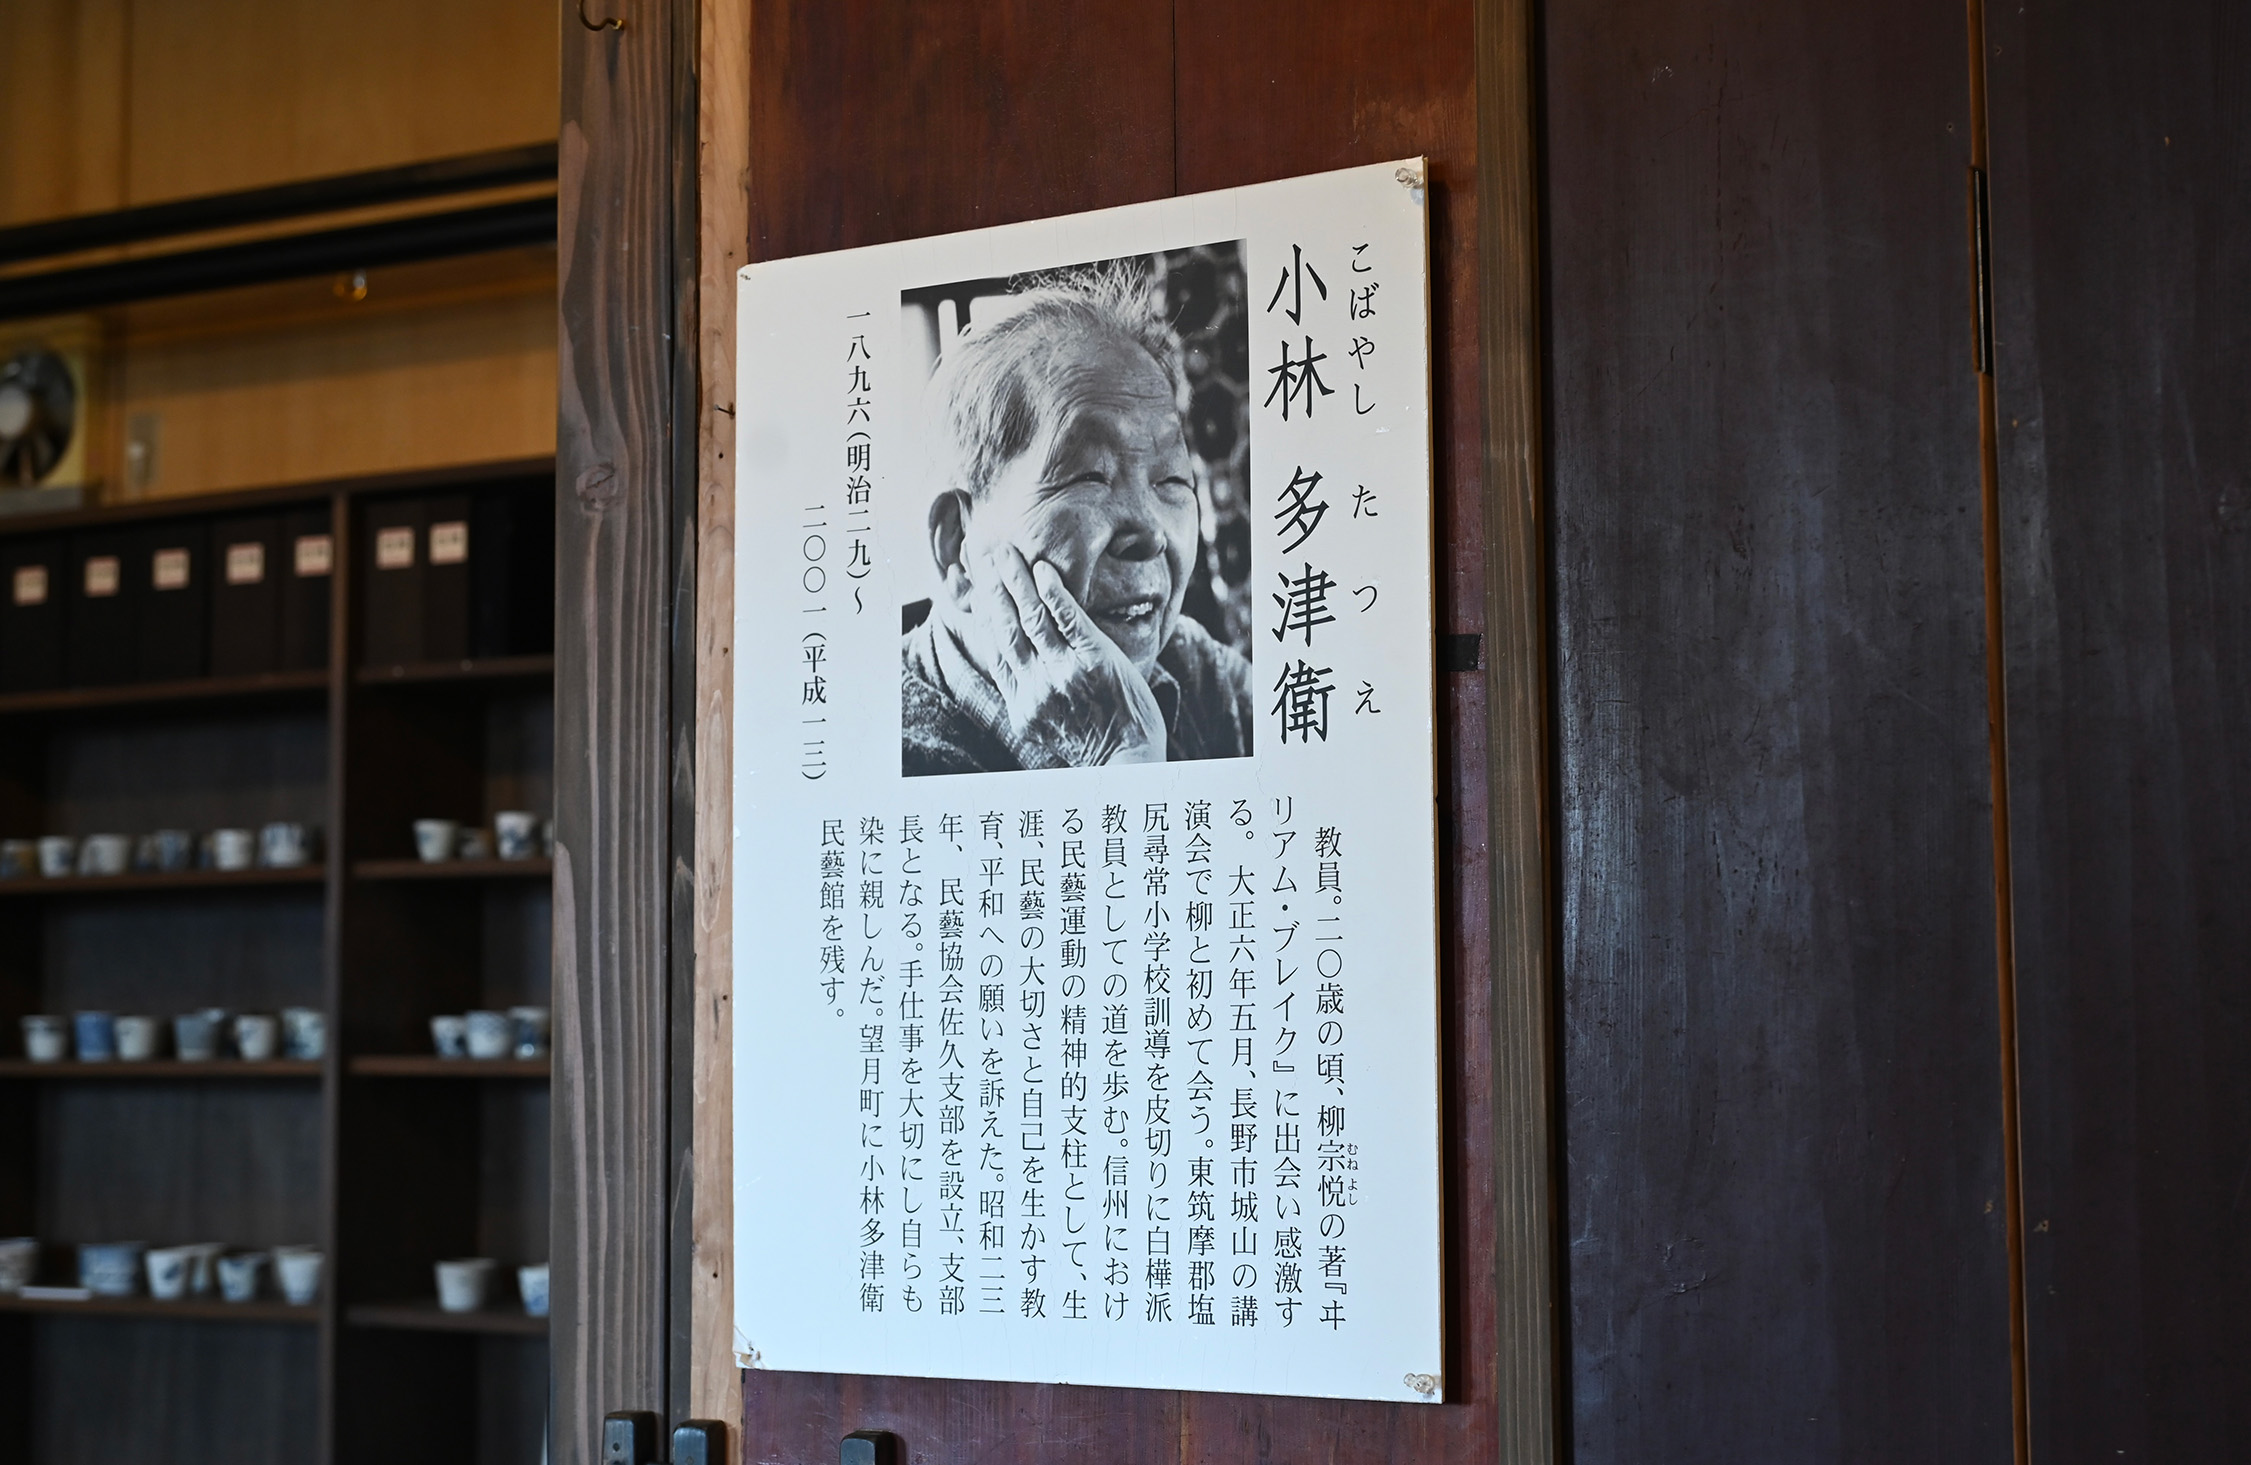 こばやし たつえ
小林 多津衛
一八九六(明治二九)～
二〇〇一(平成一三)
教員。二〇歳の頃、柳宗悦の著『ヰ
むねよし
リアム・ブレイク』に出会い感激す
る。大正六年五月、長野市城山の講
演会で柳と初めて会う。東筑摩郡塩
尻尋常小学校訓導を皮切りに白樺派
教員としての道を歩む。信州におけ
る民藝運動の精神的支柱として、生
涯、民藝の大切さと自己を生かす教
育、平和への願いを訴えた。昭和二三
年、民藝協会佐久支部を設立、支部
長となる。手仕事を大切にし自らも
染に親しんだ。望月町に小林多津衛
民藝館を残す。